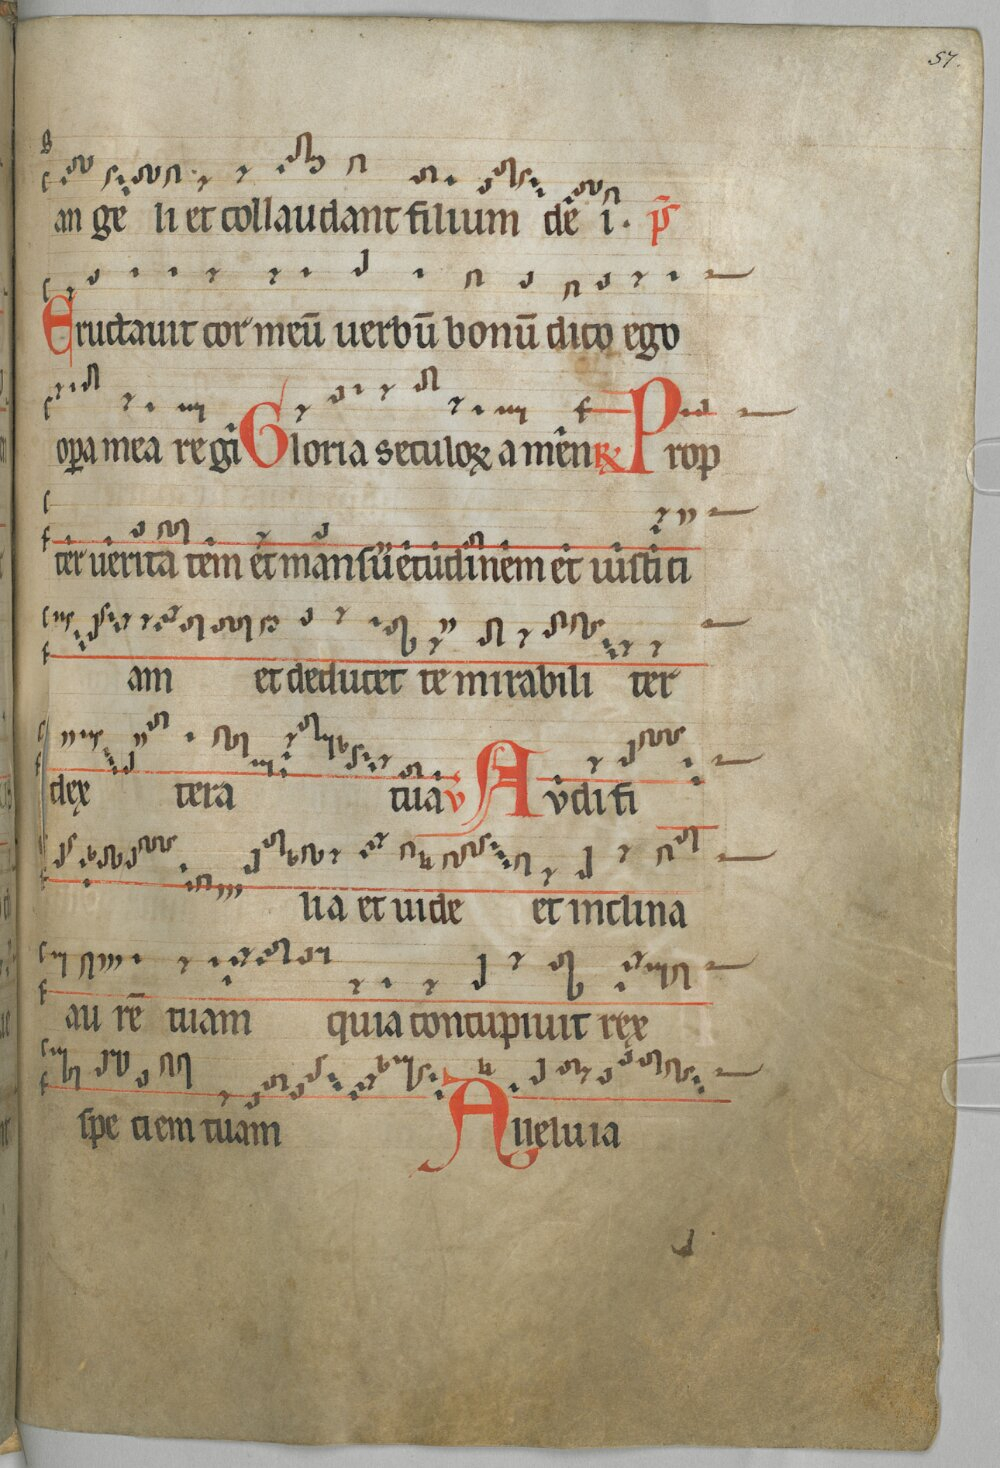 57.
an ge li et collaudant filium de i. ps̄
Eructauit cor meū uerbū bonū dico ego
opa mea regi Gloria seculoꝝ amen ꝶ Prop
ter uerita tem et mansuetudinem et iusti ci
am et deducet te mirabili ter
dex tera tua v̄ Avdi fi
lia et uide et inclina
au rē tuam quia concupiuit rex
spe ciem tuam Alleluia